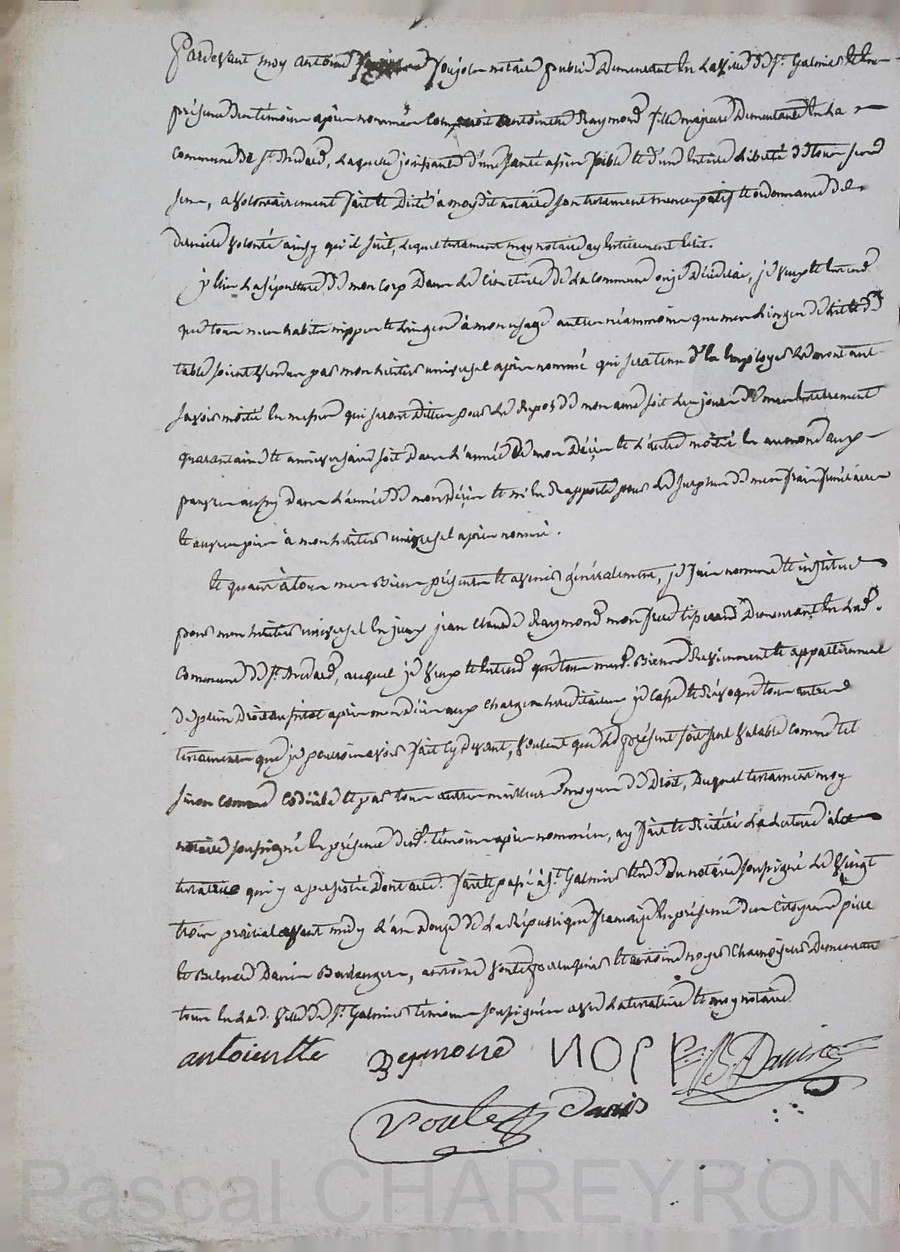 Pardevant moy antoine Pujol notaire public Demeurant En La ville de St. Galmier Et En
présence des témoins après nommés Comparoit antoinette Raymond fille majeure Demeurante En La
commune de St. Médard, Laquelle jouissante d'une santé assés foible et d'une Entière Liberté de tous ses
sens, a volontairement fait et Dicté à moy dit notaire son testament nuncupatif et ordonnance de
dernière volonté ainsy qu'il suit, Lequel testament moy notaire ay Entièrement Ecrit.
j'Elis La sépulture de mon Corp Dans Le Cimetière de La Commune où je Décèderai, je veux et Entend
que tous mes habits nippes et Linges à mon usage autres néammoins que mes Linges de Lit et de
table soient vendus par mon héritier universel après nommé qui sera tenu d'En Employer Le montant
savoir moitié En messes qui seront dittes pour Le Repos de mon ame soit Le jour de mon Enterrement
quarantaine et anniversaire soit Dans L'année de mon Décès et L'autre moitié En aumone aux
pauvres aussy Dans L'année de mon décès et m'En Rapporte pour Le surplus de mes frais funéraires
et auvres pies à mon héritier universel après nommé.
Et quant à tous mes Biens présents et avenir généralement, je fais nomme et institue
pour mon héritier universel En iceux jean Claude Raymond mon frère Demeurant En Lad.
Commune de St. Médard, auquel je veux et Entend que tous mesd. Biens Reviennent et appartiennent
de plein Droit aussitot après mon décès aux charges héréditaires je casse et Révoque tous autres
testaments que je pourrois avoir fait Cy devant, voulant que Le présent soit seul valable comme tel
sinon comme Codicile et par tous autres meilleurs moyens de Droit, Duquel testament moy
notaire soussigné En présence desd. témoins après nommés, ay fait et Réitéré La Lecture à La
testatrice qui y a persisté Dont acte. fait et passé à St. Galmier Etude du notaire soussigné Le vingt
trois prairial avant midy L'an Douze de La République française En présence des Citoyens pierre
et Bernard Danis Boulangers, antoine et antoine noyer Demeurants
tous En Lad. ville de St. Galmier témoins soussignés avec La testatrice et moy notaire
antoienette Reymond NOER B. Danis
Danis